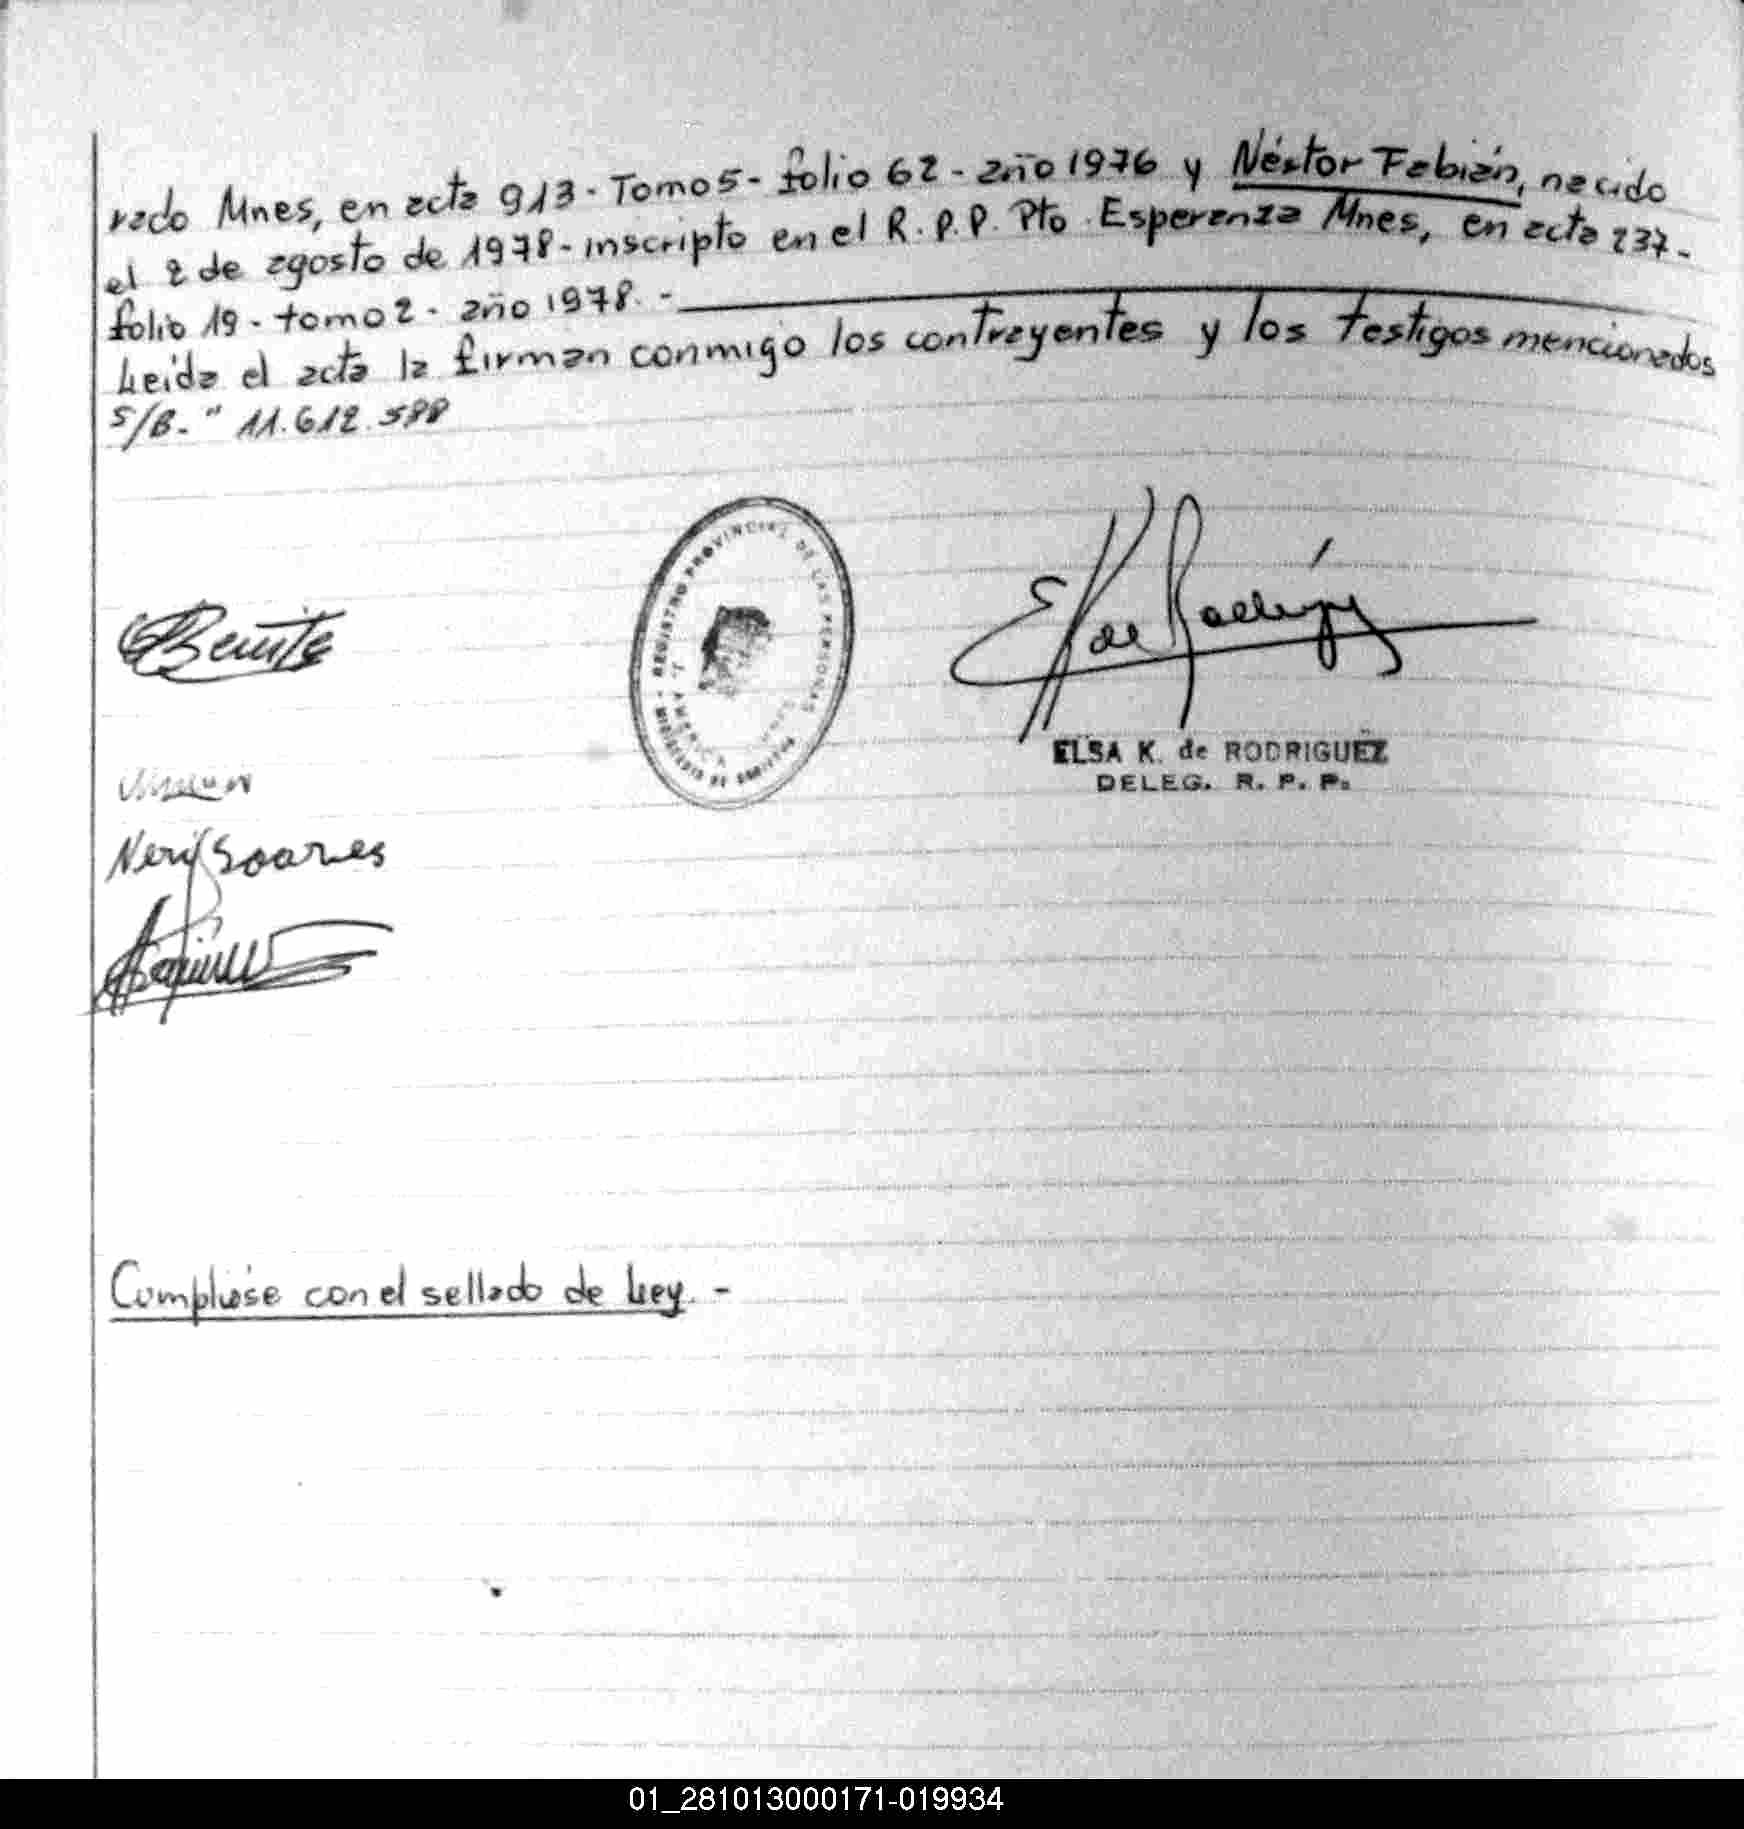 rado Mnes, en acta 913 - Tomo 5 - folio 62 - año 1976 y Néstor Fabián, nacido
el 2 de agosto de 1978 - inscripto en el R.P.P. Pto. Esperanza Mnes, en acta 237 -
folio 19 - tomo 2 - año 1978. -
Leida el acta la firman conmigo los contrayentes y los testigos mencionados
S/B - " 11.612.588
REGISTRO PROVINCIAL DE LAS PERSONAS
MINISTERIO DE GOBIERNO
Benite
E K de Rodríguez
ELSA K. de RODRIGUEZ
DELEG. R. P. P.
Nery Soares
Cumpliose con el sellado de Ley. -
01_281013000171-019934